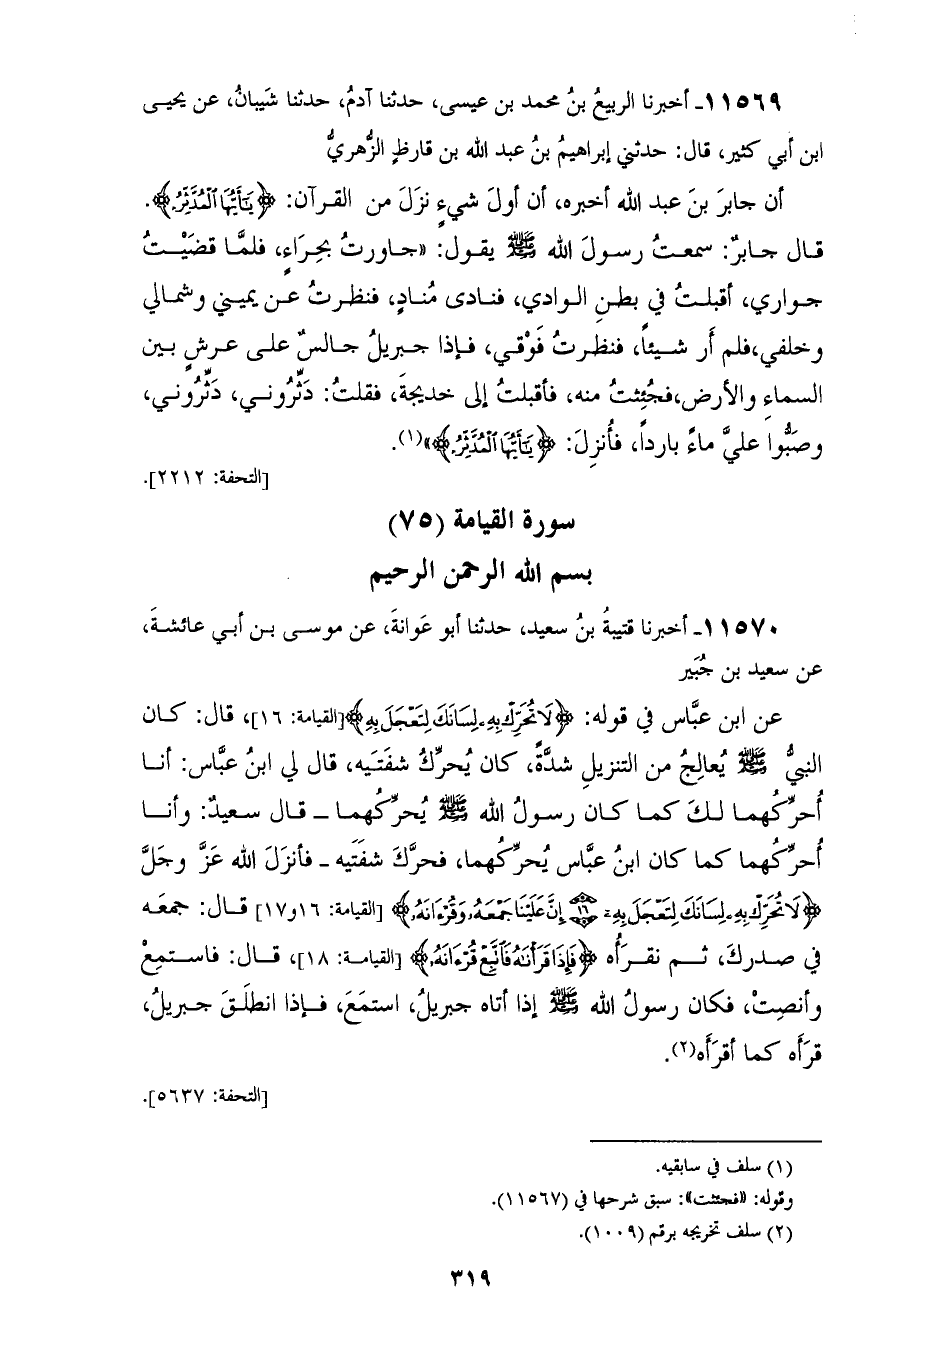 ١١٥٦٩ـ أخبرنا الربيعُ بنُ محمد بن عيسى، حدثنا آدمُ، حدثنا شَيبانُ، عن يحيى
ابن أبي كثير، قال: حدثني إبراهيمُ بنُ عبد الله بن قارظٍ الزُّهريُّ
أن جابرَ بنَ عبد الله أخبره، أن أولَ شيءٍ نزَلَ من القرآن: ﴿يَٰٓأَيُّهَا ٱلْمُدَّثِّرُ﴾.
قال جابرٌ: سمعتُ رسولَ الله ﷺ يقول: «جاورتُ بحِرَاءٍ، فلمَّا قضَيْتُ
جواري، أقبلتُ في بطنِ الوادي، فنادى مُنادٍ، فنظرتُ عن يميني وشمالي
وخلفي، فلم أَر شيئاً، فنظرتُ فَوْقي، فإذا جبريلُ جالسٌ على عرشٍ بين
السماءِ والأرض، فجُئِثتُ منه، فأقبلتُ إلى خديجةَ، فقلتُ: دَثِّرُوني، دَثِّرُوني،
وصَبُّوا عليَّ ماءً بارداً، فأُنزِلَ: ﴿يَٰٓأَيُّهَا ٱلْمُدَّثِّرُ﴾»(١).
[التحفة: ٢٢١٢].
سورة القيامة (٧٥)
بسم الله الرحمن الرحيم
١١٥٧٠ـ أخبرنا قتيبةُ بنُ سعيد، حدثنا أبو عَوانةَ، عن موسى بن أبي عائشةَ،
عن سعيد بن جُبَير
عن ابن عبَّاس في قوله: ﴿لَا تُحَرِّكْ بِهِۦ لِسَانَكَ لِتَعْجَلَ بِهِ﴾[القيامة: ١٦]، قال: كان
النبيُّ ﷺ يُعالِجُ من التنزيلِ شدَّةً، كان يُحرِّكُ شفتَيه، قال لي ابنُ عبَّاس: أنا
أُحرِّكُهما لكَ كما كان رسولُ الله ﷺ يُحرِّكُهما ـ قال سعيدٌ: وأنا
أُحرِّكُهما كما كان ابنُ عبَّاس يُحرِّكُهما، فحرَّكَ شفَتَيه ـ فأنزَلَ الله عَزَّ وجَلَّ
﴿لَا تُحَرِّكْ بِهِۦ لِسَانَكَ لِتَعْجَلَ بِهِۦٓ ١٦ إِنَّ عَلَيْنَا جَمْعَهُۥ وَقُرْءَانَهُۥ﴾ [القيامة: ١٦و١٧] قال: جمعَه
في صدركَ، ثم نقرَأُه ﴿فَإِذَا قَرَأْنَٰهُ فَٱتَّبِعْ قُرْءَانَهُۥ﴾ [القيامة: ١٨]، قال: فاستمِعْ
وأنصِتْ، فكان رسولُ الله ﷺ إذا أتاه جبريلُ، استمَعَ، فإذا انطلَقَ جبريلُ،
قرَأه كما أقرَأَه(٢).
[التحفة: ٥٦٣٧].
(١) سلف في سابقيه.
وقوله: «فجئثت»: سبق شرحها في (١١٥٦٧).
(٢) سلف تخريجه برقم (١٠٠٩).
٣١٩